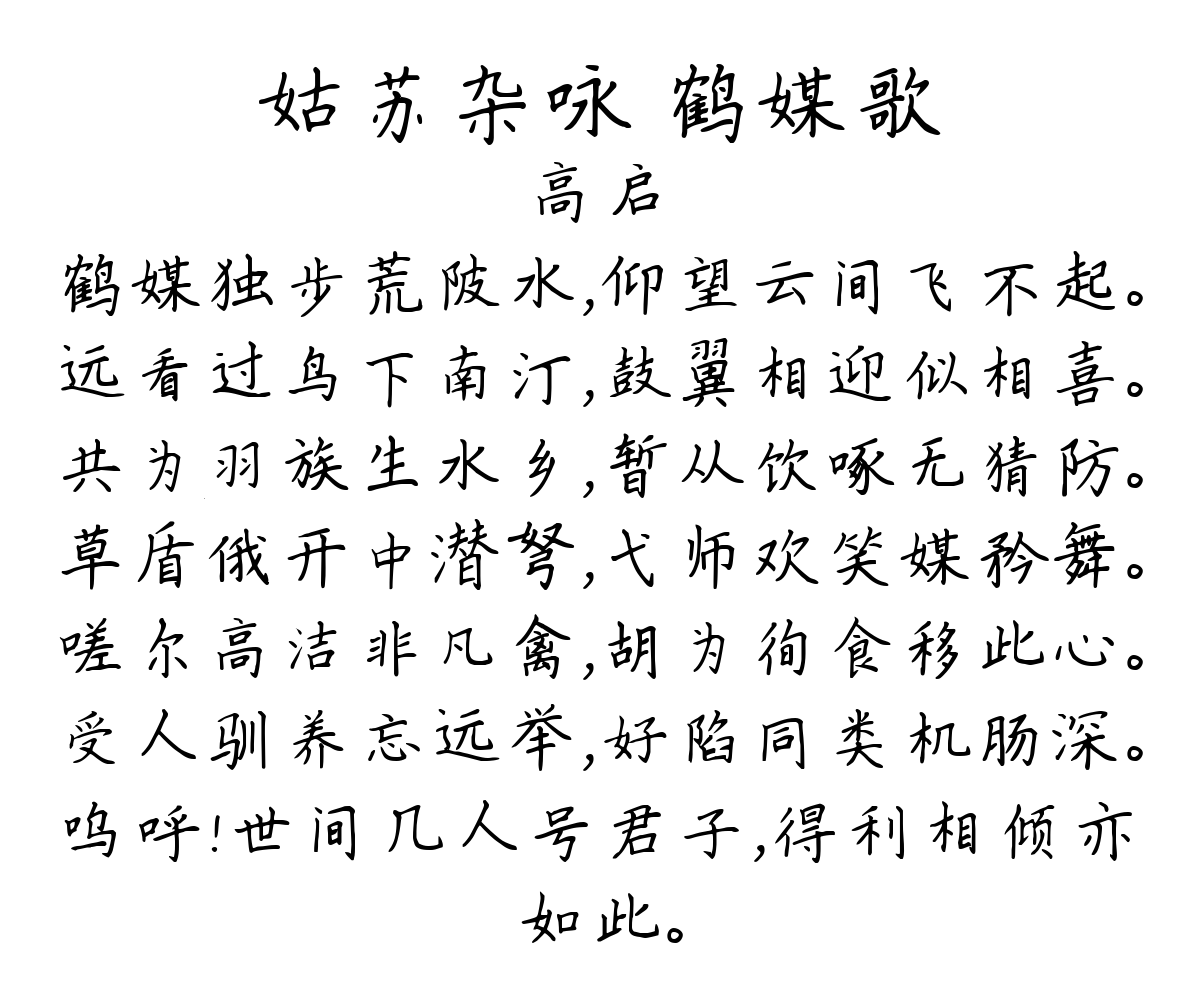 姑苏杂咏 鹤媒歌
高启
鹤媒独步荒陂水,仰望云间飞不起。
远看过鸟下南汀,鼓翼相迎似相喜。
共为羽族生水乡,暂从饮啄无猜防。
草盾俄开中潜弩,弋师欢笑媒矜舞。
嗟尔高洁非凡禽,胡为徇食移此心。
受人驯养忘远举,好陷同类机肠深。
呜呼!世间几人号君子,得利相倾亦
如此。